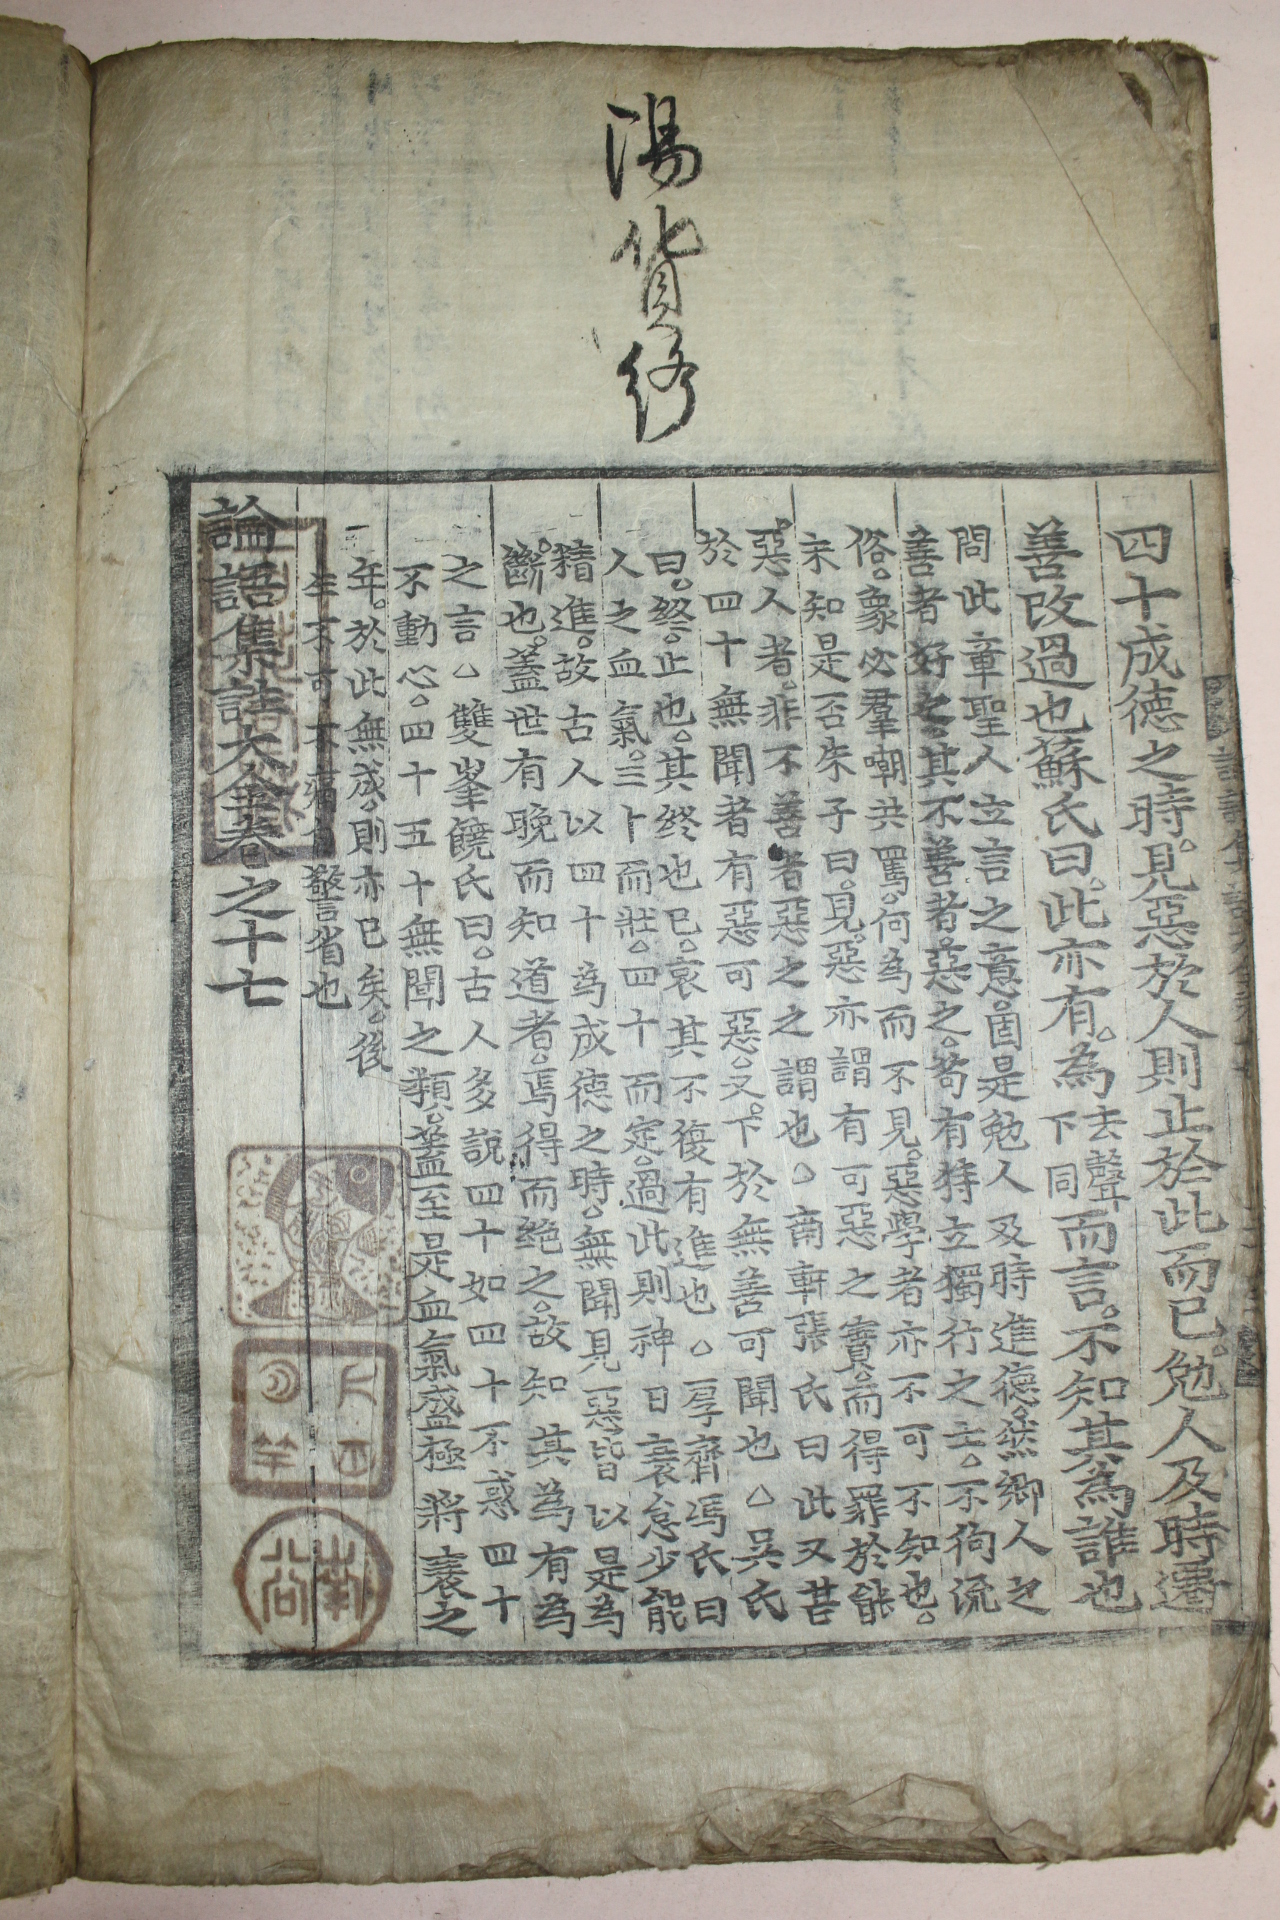 陽貨終
四十成德之時。見惡於人則止於此而已。勉人及時遷
善改過也蘇氏曰。此亦有。為去聲下同而言。不知其為誰也
問此章聖人立言之意。固是勉人及時進德。然鄉人之
善者好之。其不善者惡之。苟有特立獨行之士。不徇流
俗。衆必羣嘲共罵。何為而不見。惡學者亦不可不知也。
未知是否朱子曰。見。惡亦謂有可惡之實。而得罪於能
惡。人者。非不善者惡之之謂也○南軒張氏曰此又甚
於四十無聞者有惡可惡。又。下於無善可聞也○吳氏
曰。終。止也。其終也已。哀其不復有進也○厚齊馮氏曰
人之血氣。三十而壯。四十而定。過此則神日衰怠少能
精進。故古人以四十為成德之時。無聞見惡皆以是為
斷。也。蓋世有晚而知道者。焉得而絶之。故知其為有為
之言○雙峯饒氏曰。古人多說四十如四十不惑四十
不動心。四十五十無聞之類。蓋至是血氣盛極將衰之
年。於此無成。則亦已矣。後
生不可不痛自警省也
論語集註大全卷之十七